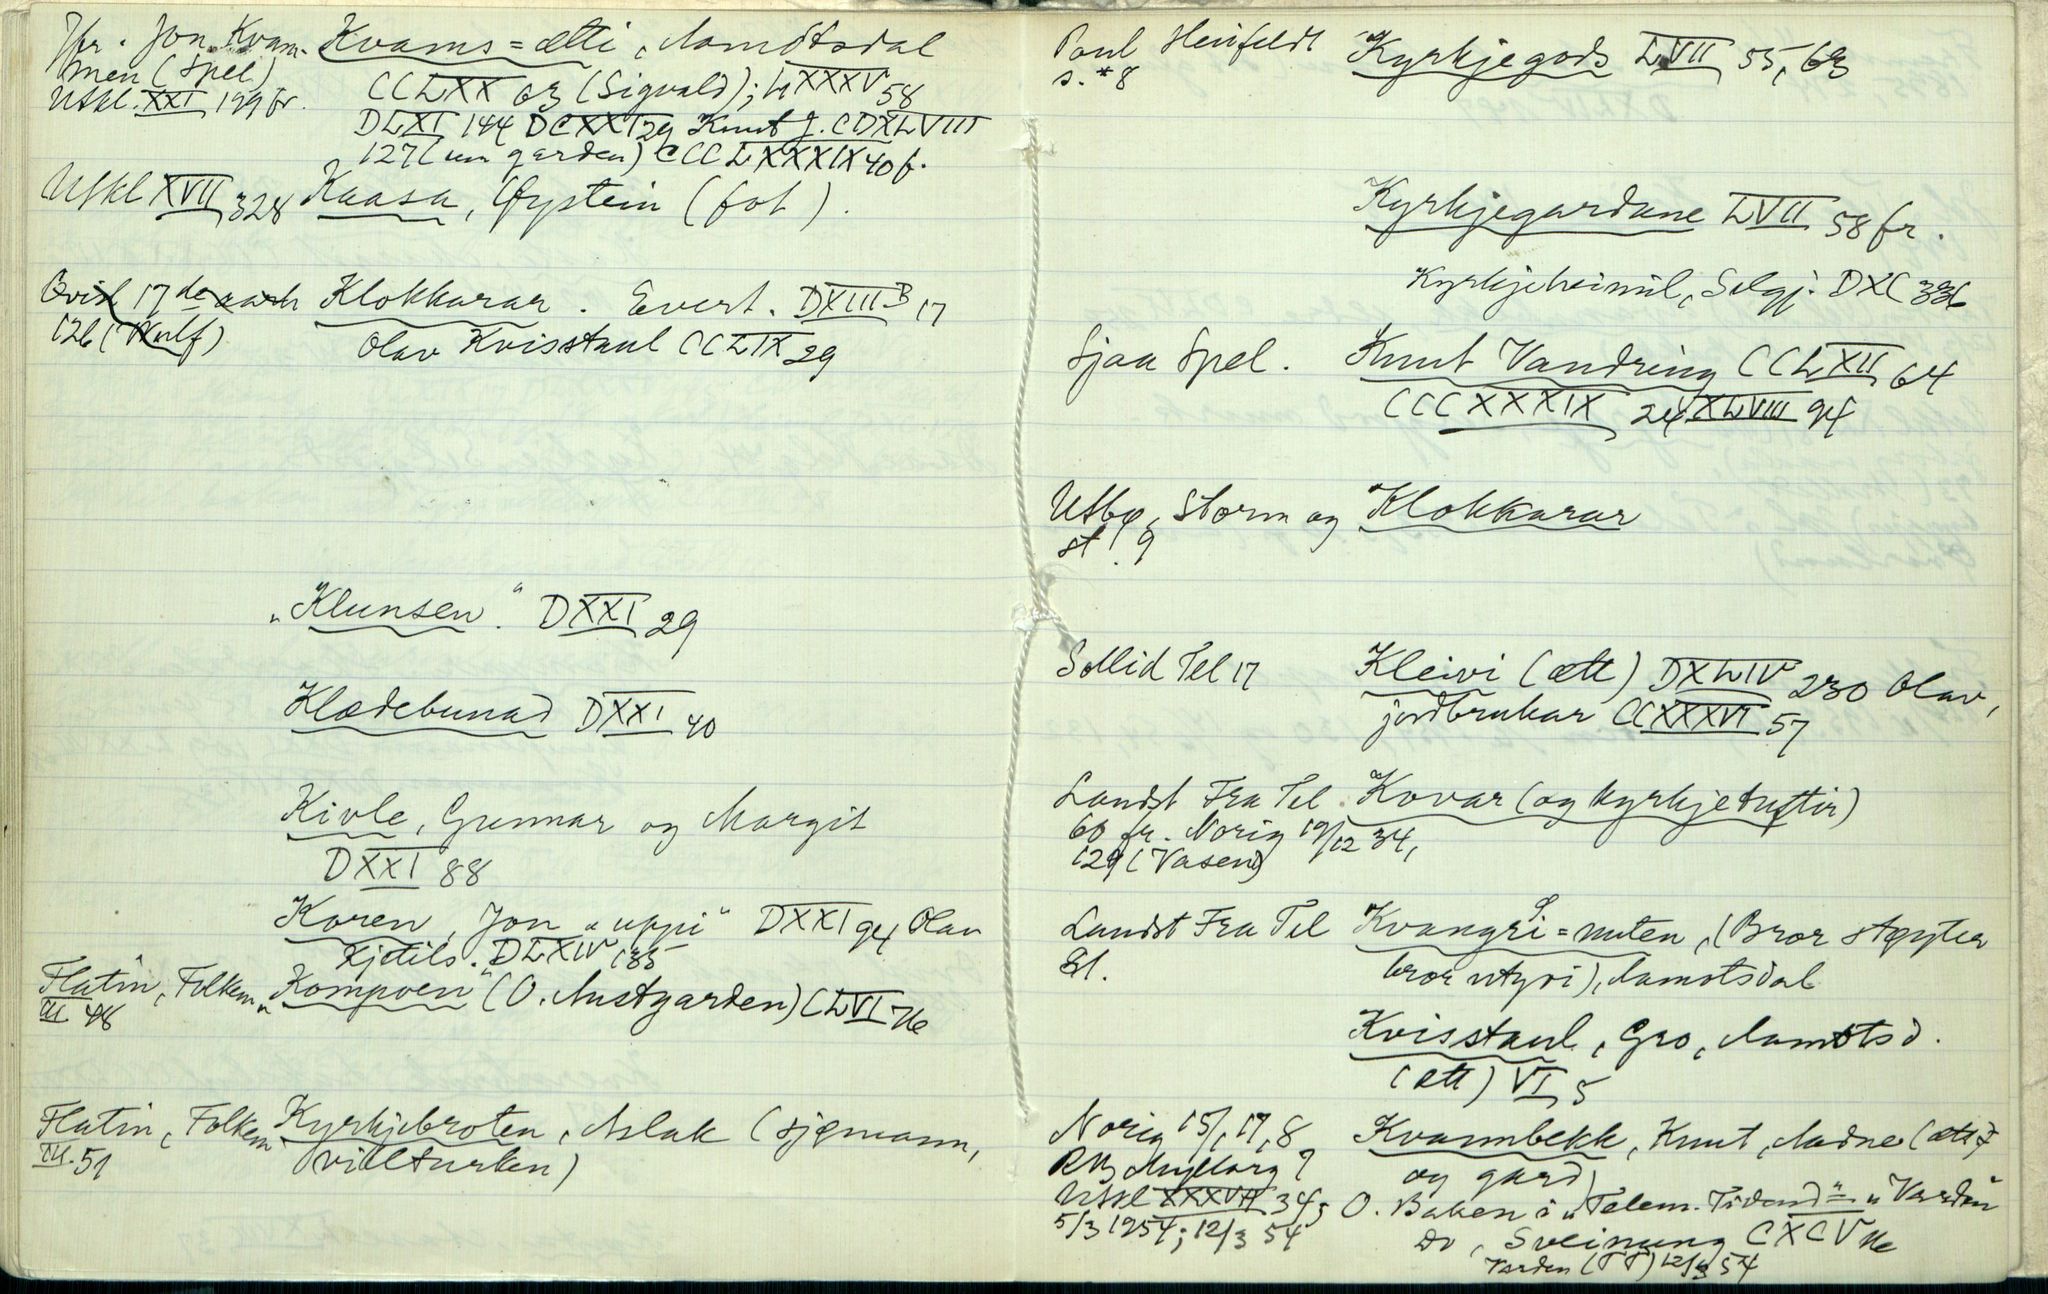 Jfr. Jon Kvam- Kvams=ætti, Aamotsdal
men (Spel) CCLXX 63 (Sigvald); LXXXV 58
Utkl. XXI 199 fr. DLXI 144 DCXXI 29 Knut J. CDXLVIII
127 (um garden) CCCLXXXIX 40 f.
Utkl XVII 328 Kaasa, Øystein (fot).
Qvisl 17de aarh Klokkarar. Evert. DXIII B 17
126 (Wulf) Olav Kvisstaul CCLIX 29
"Klunsen." DXXI 29
Klædebunad DXXI 40
Kivle, Gunnar og Margit
DXXI 88
Koren, Jon "uppi" DXXI 94 Olav
Kjetils. DLXIV 135
Flatin, Folkem "Kompoen" (O. Austgarden) CLVI 76
III 48
Flatin, Folkem Kyrkjebroten, Aslak (sjømann,
III. 51 villturken)
Poul Heinfeldt Kyrkjegods LVII 55, 63
s. *8
Kyrkjegardane LVII 58 fr.
Kyrkjeheimil, Selgj. DXC 336
Sjaa Spel. Knut Vandring CCLXII 64
CCCXXXIX 24 XLVIII 94
Utbø, Storm og Klokkarar
st! 9
Sollid Tel 17 Kleivi (ætt) DXLIV 230 Olav,
jordbrukar CCXXXVI 57
Landst Fra Tel Kovar (og kyrkjetuftir)
60 fr. Norig 19/12 34,
129 (Vasend)
Landst Fra Tel Kvangri=nuten, (Bror støyter
bror utyvi), Aamotsdal
Kvisstaul, Gro, Aamotsd.
(ætt) VI 5
Norig 15/, 17, 8 Kvannbekk, Knut, Aadne (ætt
og gard)
Utkl XXXVII 34; O. Bakken i "Telem. Tidend" = "Varden"
5/3 1954; 12/3 54 Do, Sveinung CXCV 76
Varden (TT) 12/3 54